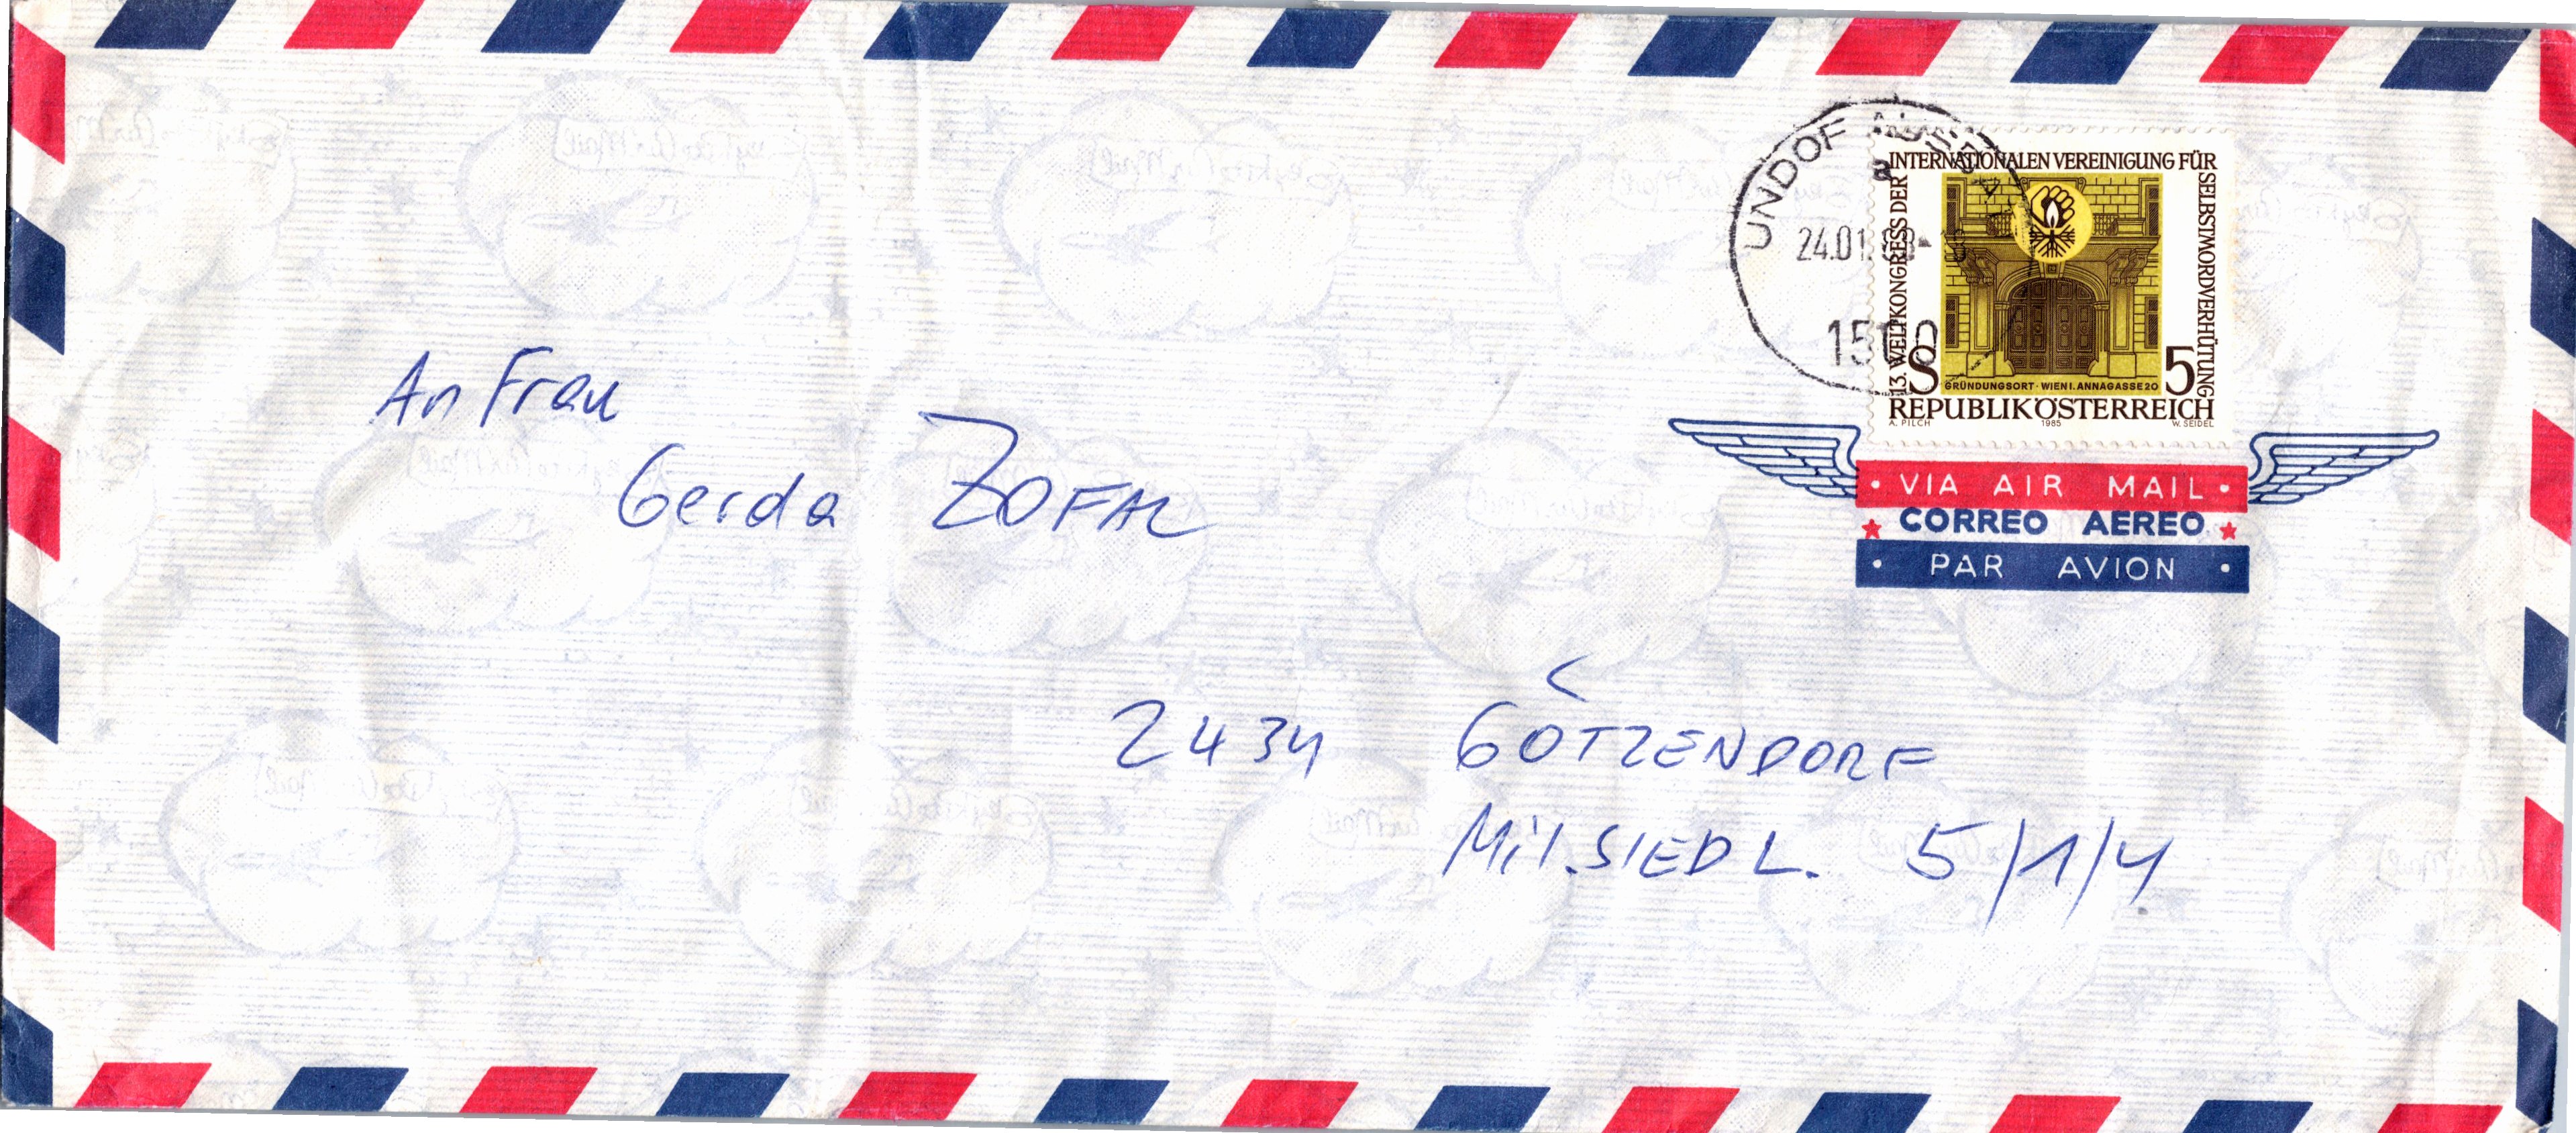 UNDOF AUSBAT
a
24.01.
1500
13. WELTKONGRESS DER INTERNATIONALEN VEREINIGUNG FÜR SELBSTMORDVERHÜTUNG
GRÜNDUNGSORT · WIEN I. ANNAGASSE 20
S 5
REPUBLIK ÖSTERREICH
A. PILCH 1985 W. SEIDEL
An Frau
Gerda ZOFAL
· VIA AIR MAIL ·
CORREO AEREO
· PAR AVION ·
2434 GÖTZENDORF
Mil.SIEDL. 5/1/4